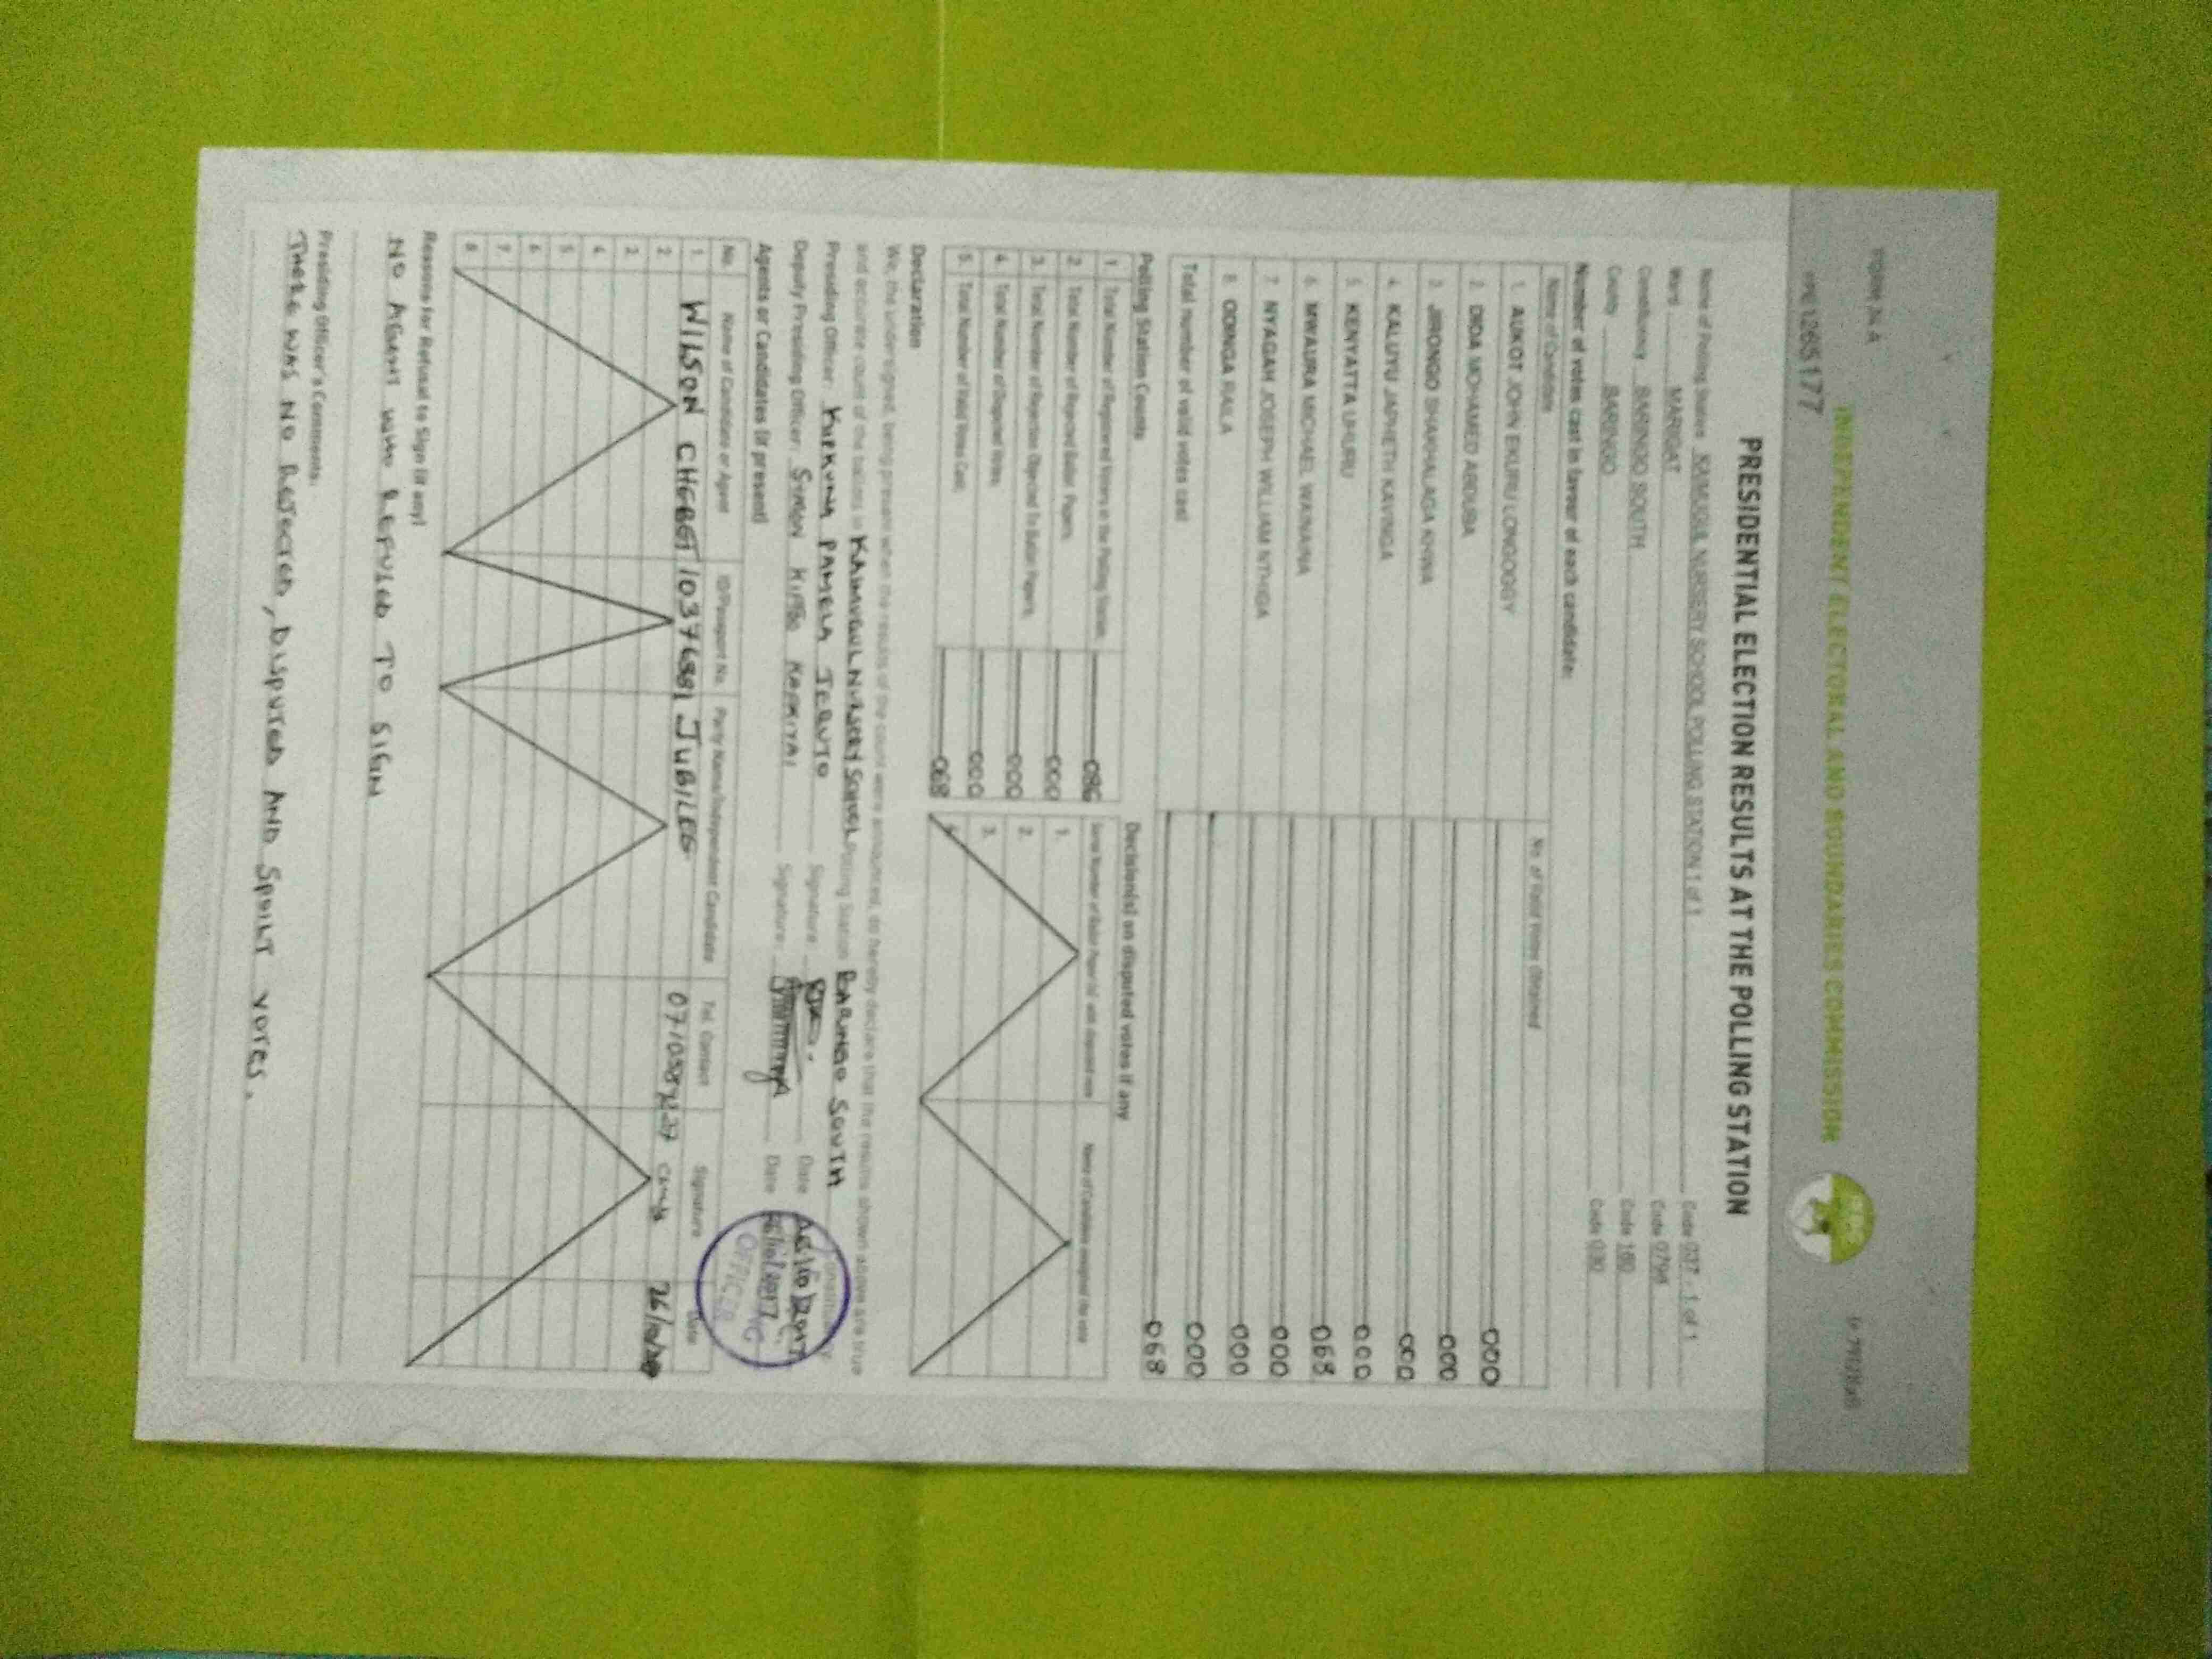 FORM 34 A
INDEPENDENT ELECTORAL AND BOUNDARIES COMMISSION
1265177
PRESIDENTIAL ELECTION RESULTS AT THE POLLING STATION
Name of Polling Station KAIMUGUL NURSERY SCHOOL POLLING STATION 1 of 1 Code 037 - 1 of 1
Ward MARIGAT Code 0798
Constituency BARINGO SOUTH Code 160
County BARINGO Code 030
Number of votes cast in favour of each candidate:
Name of Candidate No. of Valid Votes Obtained
1. AUKOT JOHN EKURU LONGOGGY 000
2. DIDA MOHAMED ABDUBA 000
3. JIRONGO SHAKHALAGA KHWA 000
4. KALUYU JAPHETH KAVINGA 000
5. KENYATTA UHURU 068
6. MWAURA MICHAEL WAINAINA 000
7. NYAGAH JOSEPH WILLIAM NTHIGA 000
8. ODINGA RAILA 000
Total number of valid votes cast 068
Polling Station Counts
1. Total Number of Registered Voters in the Polling Station 086
2. Total Number of Rejected Ballot Papers 000
3. Total Number of Rejection Objected To Ballot Papers 000
4. Total Number of Disputed Votes 000
5. Total Number of Valid Votes Cast 068
Decision(s) on disputed votes if any
Serial Number of Ballot Paper(s) with disputed vote Name of Candidate assigned the vote
1.
2.
3.
4.
Declaration
We, the undersigned, being present when the results of the count were announced, do hereby declare that the results shown above are true
and accurate count of the ballots in KAIMUGUL NURSERY SCHOOL Polling Station BARINGO SOUTH Constituency
Presiding Officer: KIPKUNA PAMELA JERUTO Signature Date
Deputy Presiding Officer: SIMION Signature Date 26/10/2017
Agents or Candidates (if present)
No. Name of Candidate or Agent ID/Passport No. Party Name/Independent Candidate Tel. Contact Signature Date
1. WILSON CHEBET JUBILEE 26/10/2017
2
3
4
5
6
7
8
Reasons for Refusal to Sign (if any)
NO AGENT WHO REFUSED TO SIGN
Presiding Officer's Comments:
THERE WAS NO REJECTED, DISPUTED AND SPOILT VOTES.